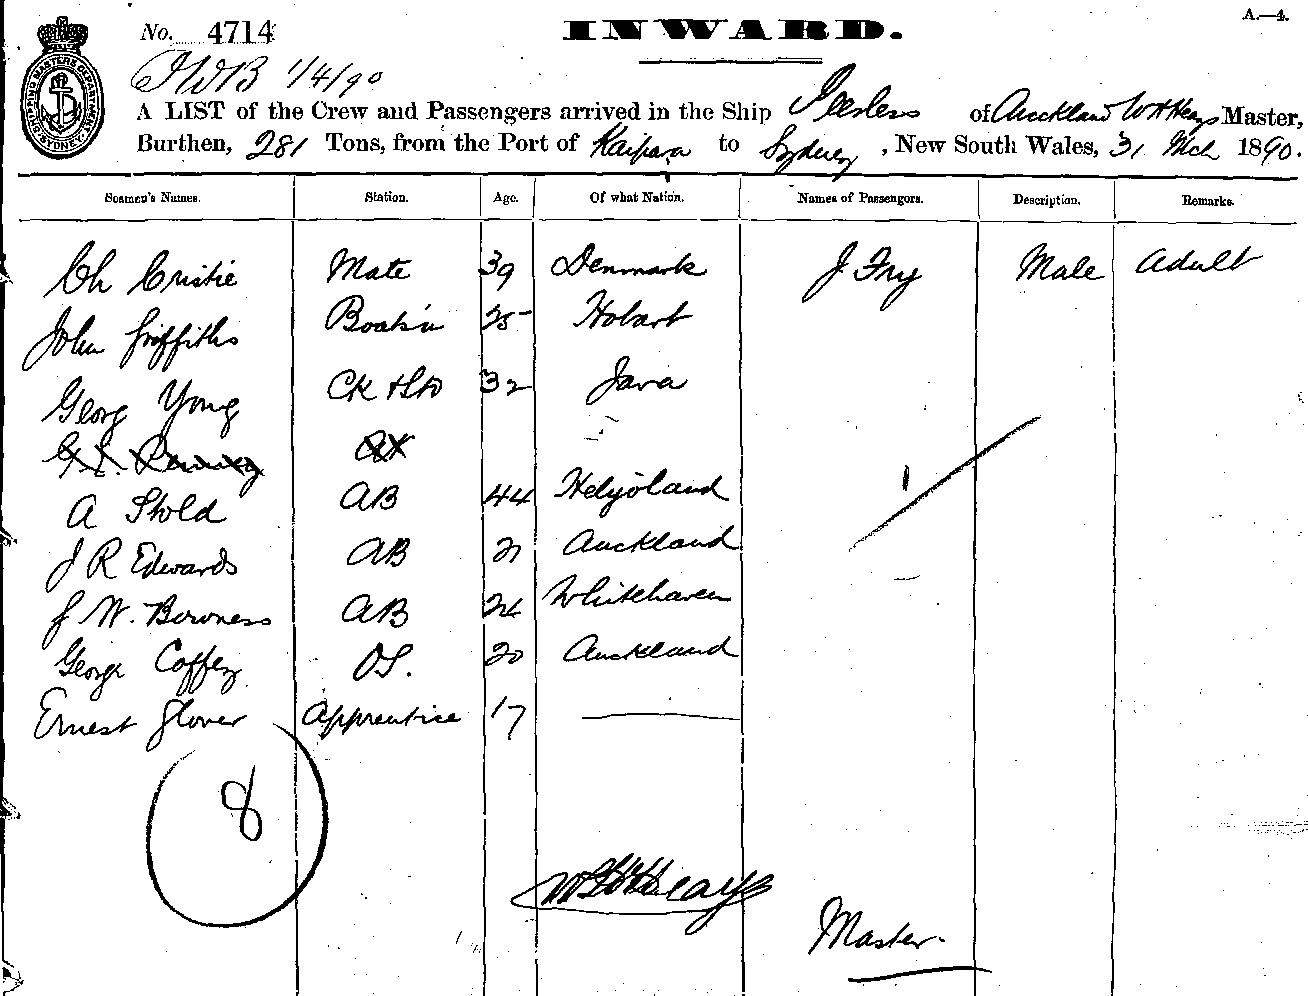 No. 4714
INWARD.
A.—4.
SHIPPING MASTERS DEPARTMENT SYDNEY
1/4/90
A LIST of the Crew and Passengers arrived in the Ship Peerless of Auckland W H Heays Master,
Burthen, 281 Tons, from the Port of Kaipara to Sydney, New South Wales, 31 Mch 1890.
Seamen's Names. Station. Age. Of what Nation. Names of Passengers. Description. Remarks.
Ch Cristie Mate 39 Denmark J Fry Male Adult
John Griffiths Boats'n 25 Hobart
Georg Yong Ck & Std 32 Java
A Stold AB 44 Helyoland
J R Edwards AB 21 Auckland
J W. Bowness AB 24 Whitehaven
George Coffey OS. 20 Auckland
Ernest Glover Apprentice 17
1
8
W H Heays
Master